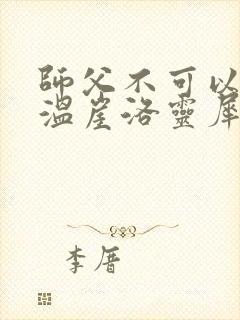 師父不可以
溫崖洛靈犀
李厝